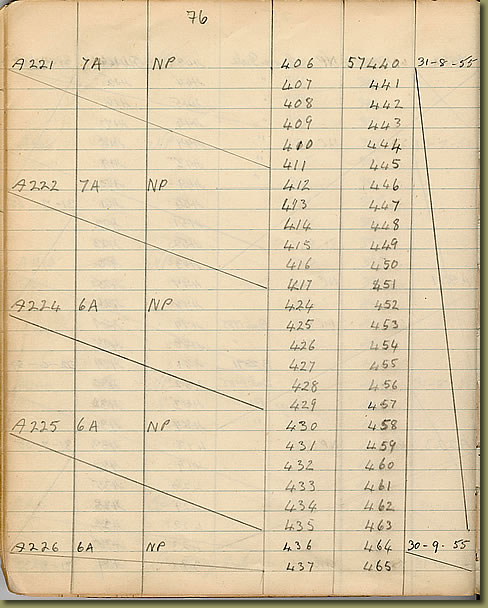 76
A221 7A NP 406 57440 31-8-55
407 441
408 442
409 443
410 444
411 445
A222 7A NP 412 446
413 447
414 448
415 449
416 450
417 451
A224 6A NP 424 452
425 453
426 454
427 455
428 456
429 457
A225 6A NP 430 458
431 459
432 460
433 461
434 462
435 463
A226 6A NP 436 464 30-9-55
437 465